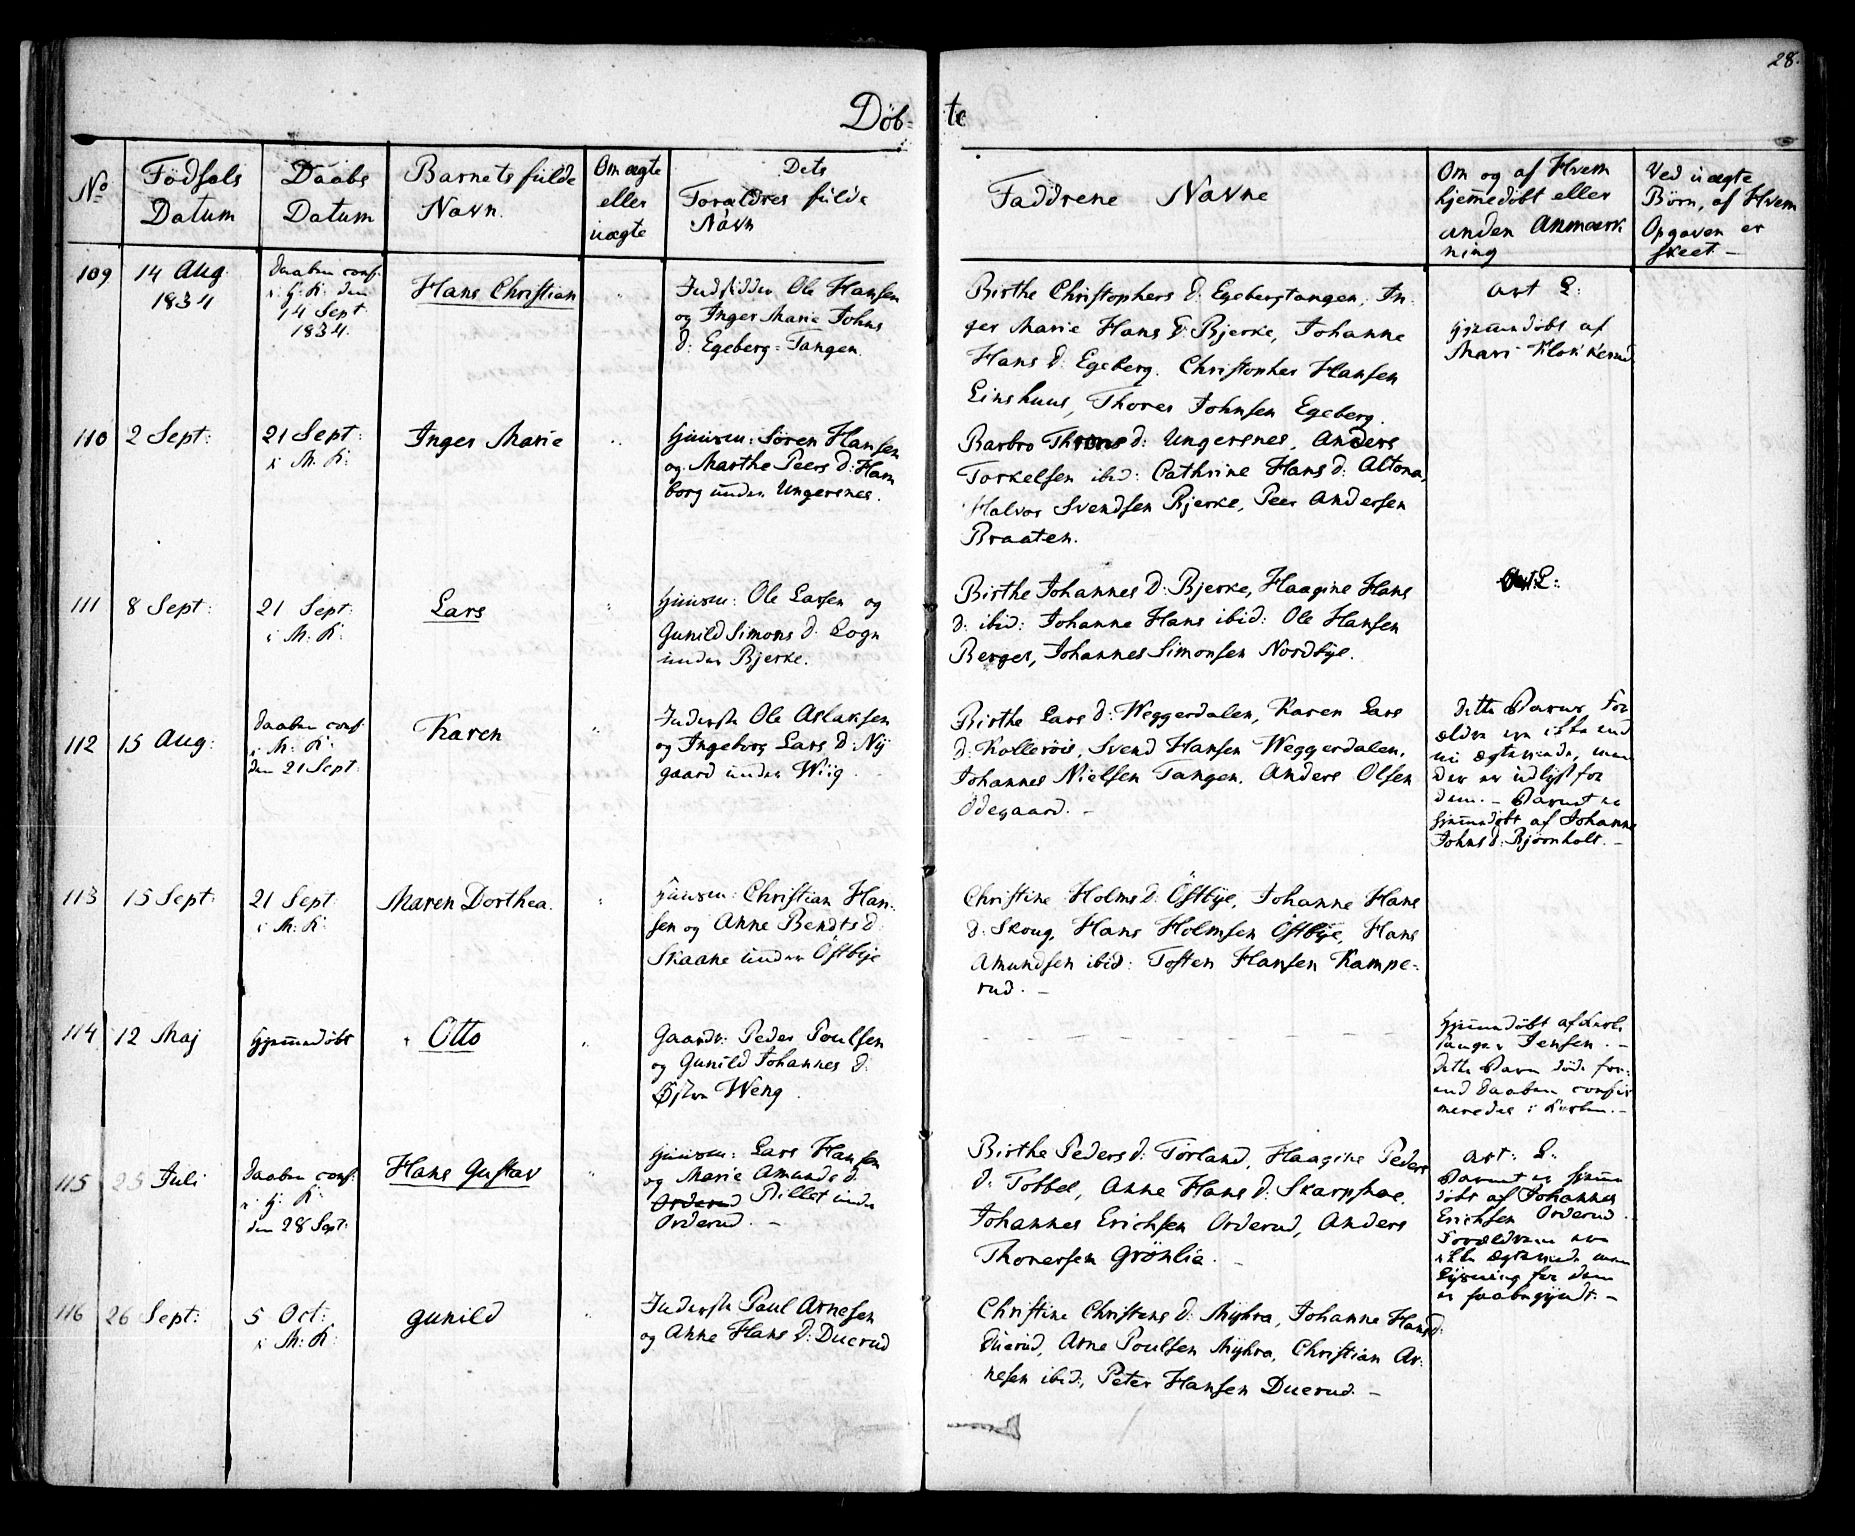 28.
Døb-te
No
Födsels Datum
Daabs Datum
Barnets fulde Navn.
Om ægte eller uægte
Dets Forældres fulde Navn
Faddrene Navne
Om og af Hvem hjemmedöbt eller anden Anmærkning
Ved uægte Börn, af Hvem Opgaven er skeet –
109
14 Aug. 1834
Daaben conf. i H: K: den 14 Sept 1834.
Hans Christian
"
Indsidder Ole Hansen
og Inger Marie Johns
d: Egeberg-Tangen.
Birthe Christophers d: Egebergtangen, In-
ger Marie Hans d: Bjerke, Johanne
Hans d: Egeberg. Christopher Hansen
Linshuus, Thores Johnsen Egeberg.
att L:
hjemmdöbt af
Mari Klokkerud
110
2 Sept:
21 Sept: i M: K:
Inger Marie
"
Huusm: Sören Hansen
og Marthe Peers d: Ham
borg under Ungersnes.
Barbro Throns d: Ungersnes, Anders
Torkelsen ibid: Cathrine Hans d: Altona,
Halvor Svendsen Bjerke, Peer Andersen
Braaten.
111
8 Sept:
21 Sept: i M: K:
Lars
"
Huusm: Ole Larsen og
Gunild Simons d: Logn
under Bjerke.
Birthe Johannes d: Bjerke, Haagine Hans
d: ibid: Johanne Hans ibid: Ole Hansen
Berger, Johannes Simonsen Nordbye.
att L:
112
15 Aug:
Daaben conf. i M: K: den 21 Sept:
Karen
"
Inderste Ole Aslaksen
og Ingeborg Lars d: Ny
gaard under Wiig.
Birthe Lars d: Weggerdalen, Karen Lars
d: Kolleröis, Svend Hansen Weggerdalen,
Johannes Nielsen Tangen. Anders Olsen
Ödegaard. –
Dette Barns For
ældre ere ikke end
nu ægteviede, men
der er udlyst for
dem. – Barnet er
hjemmdöbt af Johanne
Johns d: Bjørnholt. –
113
15 Sept:
21 Sept i M: K:
Maren Dorthea.
"
Huusm: Christian Han-
sen og Anne Bendts d:
Skaane under Östbye
Christine Holms d: Östbye, Johanne Hans
d: Skoug, Hans Holmsen Östbye, Hans
Amundsen ibid: Tosten Hansen Kampe-
rud. –
114
12 Maj
hjemmdöbt
Otto
"
Gaardb: Peder Poulsen
og Gunild Johannes d:
Østre Weng.
– – – – – – –
hjemmdöbt af
Jensen. –
dette Barn döde för-
end Daaben confir
meredes i Kirken. –
115
25 Juli
Daaben conf: i H: K: den 28 Sept:
Hans Gustav
"
Huusm: Lars Hansen
og Marie Amunds d:
Orderud Pillet under
Orderud. –
Birthe Peders d: Torland, Haagine Peders
d: Tobbel, Anne Hans d: Skarpsnoe,
Johannes Erichsen Orderud, Anders
Thoresen Grönlie. –
att: L:
Barnet er hjemm
döbt af Johannes
Erichsen Orderud.
Forældrene ere
ikke ægteviede men
Lysning for dem
er paabegyndt. –
116
26 Sept:
5 Oct: i M: K:
Gunild
"
Inderste Paul Arnesen
og Anne Hans d: Duerud
Christine Christens d: Myhra, Johanne Hans d:
Duerud, Arne Poulsen Myhra, Christian Ar-
nesen ibid:, Peter Hansen Duerud. –